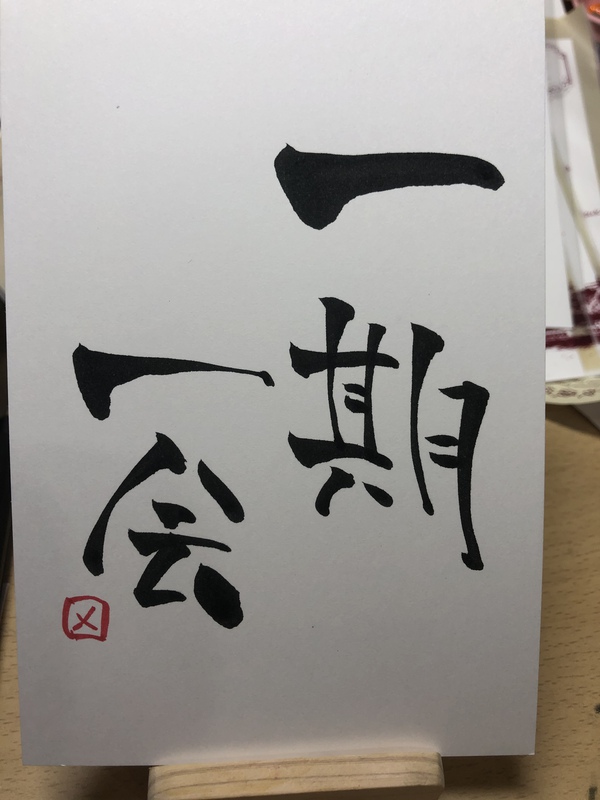 一期
一会
メ